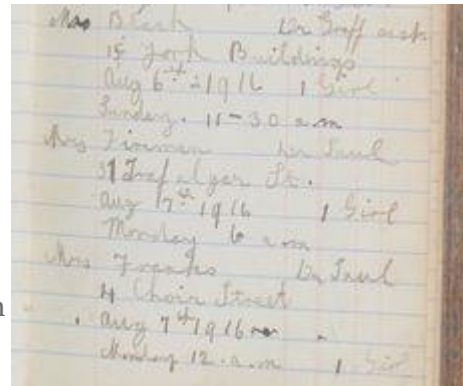 Mrs Black Dr Graff asst
15 York Buildings
Aug 6th 1916 1 Girl
Sunday. 11-30 a.m
Mrs Dr Saul
37 Trafalgar St.
Aug 7th 1916 1 Girl
Monday 6 a.m
Mrs Franks Dr Saul
4 Choir Street
Aug 7th 1916
Monday 12. a.m 1 Girl